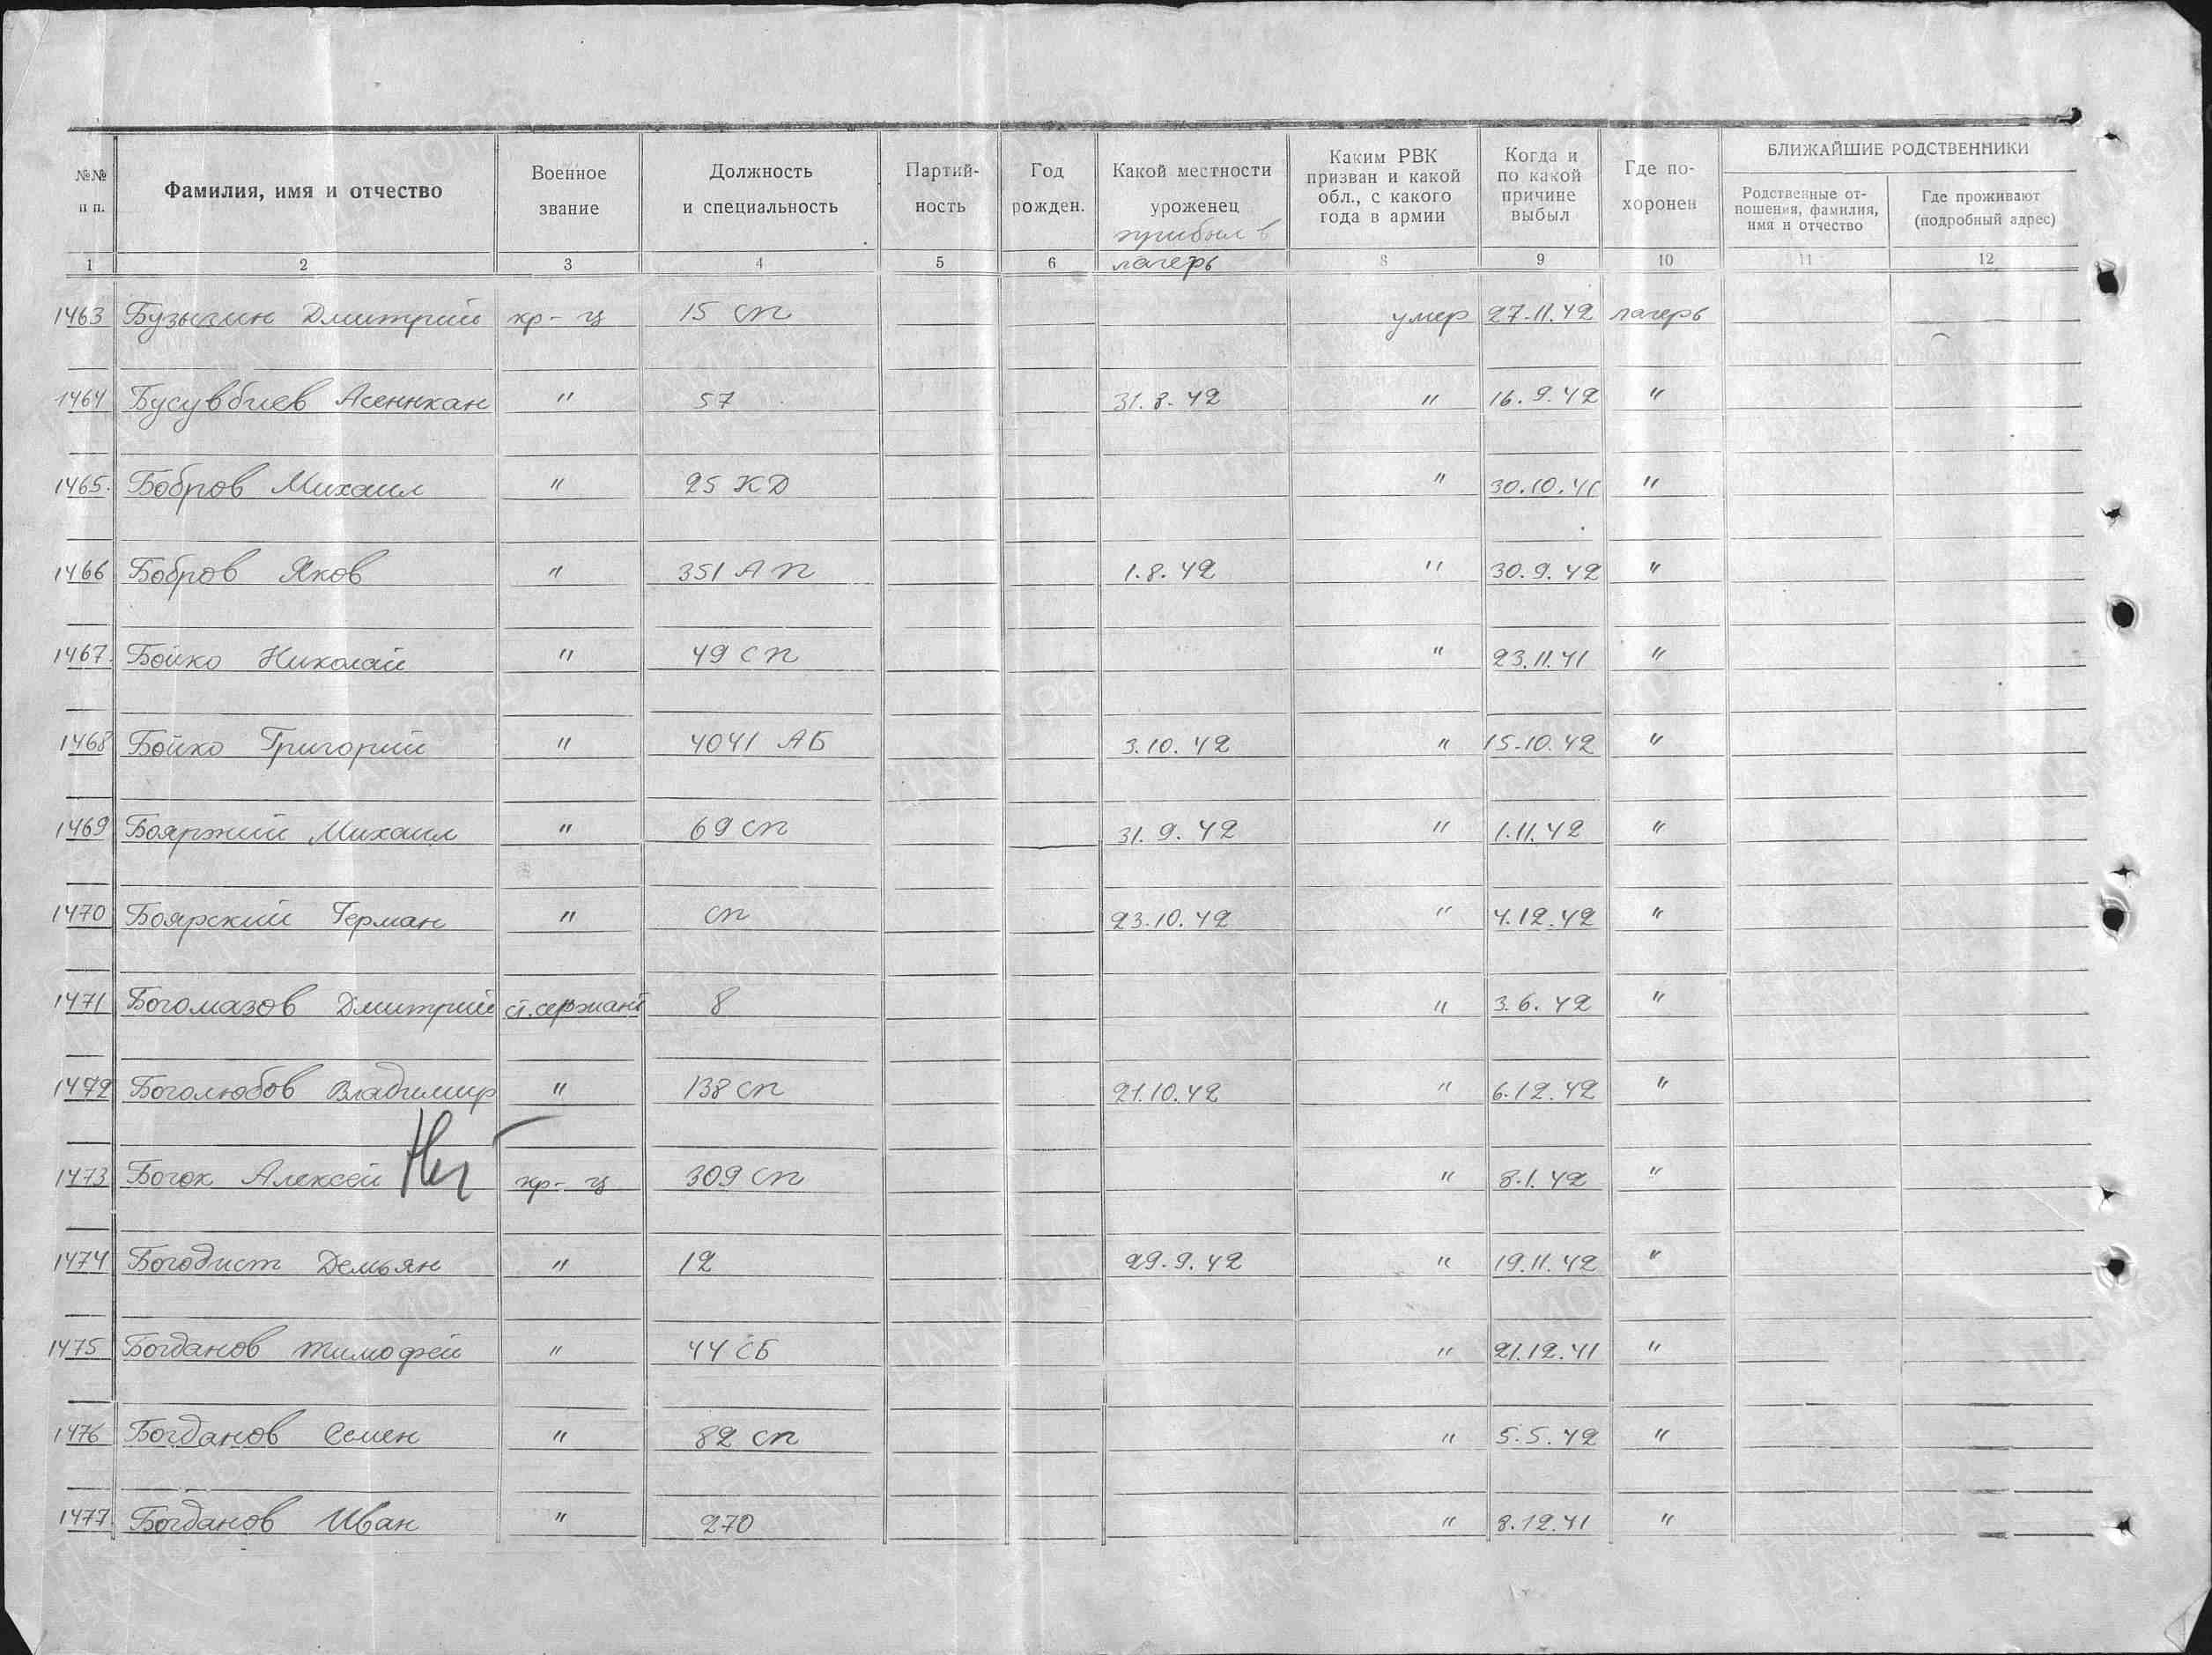 №№ п п. | Фамилия, имя и отчество | Военное звание | Должность и специальность | Партий-ность | Год рожден. | Какой местности уроженец прибыл в лагерь | Каким РВК призван и какой обл., с какого года в армии | Когда и по какой причине выбыл | Где по-хоронен | БЛИЖАЙШИЕ РОДСТВЕННИКИ | Родственные от-ношения, фамилия, имя и отчество | Где проживают (подробный адрес)
1 2 3 4 5 6 8 9 10 11 12
1463 Бузыгин Дмитрий кр-ц 15 сп умер 27.11.42 лагерь
1464 Бусувбиев Асеннкан " 57 31.8.42 " 16.9.42 "
1465. Бобров Михаил " 25 КД " 30.10.41 "
1466 Бобров Яков " 351 АП 1.8.42 " 30.9.42 "
1467. Бойко Николай " 49 сп " 23.11.41 "
1468 Бойко Григорий " 4041 АБ 3.10.42 " 15.10.42 "
1469 Бояржий Михаил " 69 сп 31.9.42 " 1.11.42 "
1470 Боярский Герман " сп 23.10.42 " 4.12.42 "
1471 Богомазов Дмитрий ст. сержант 8 " 3.6.42 "
1472 Боголюбов Владимир " 138 сп 21.10.42 " 6.12.42 "
1473 Богок Алексей Нет кр-ц 309 сп " 8.1.42 "
1474 Богодист Демьян " 12 29.9.42 " 19.11.42 "
1475 Богданов Тимофей " 44 СБ " 21.12.41 "
1476 Богданов Семен " 82 сп " 5.5.42 "
1477. Богданов Иван " 270 " 8.12.41 "